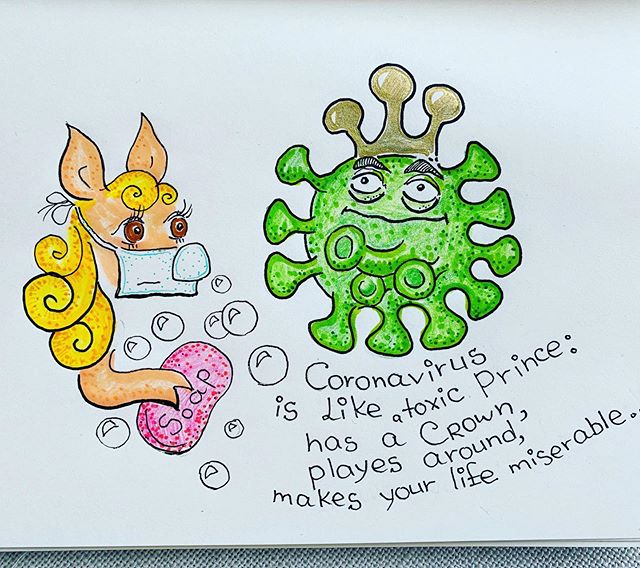 Soap
Coronavirus
is Like a toxic Prince:
has a Crown,
playes around,
makes your life miserable.